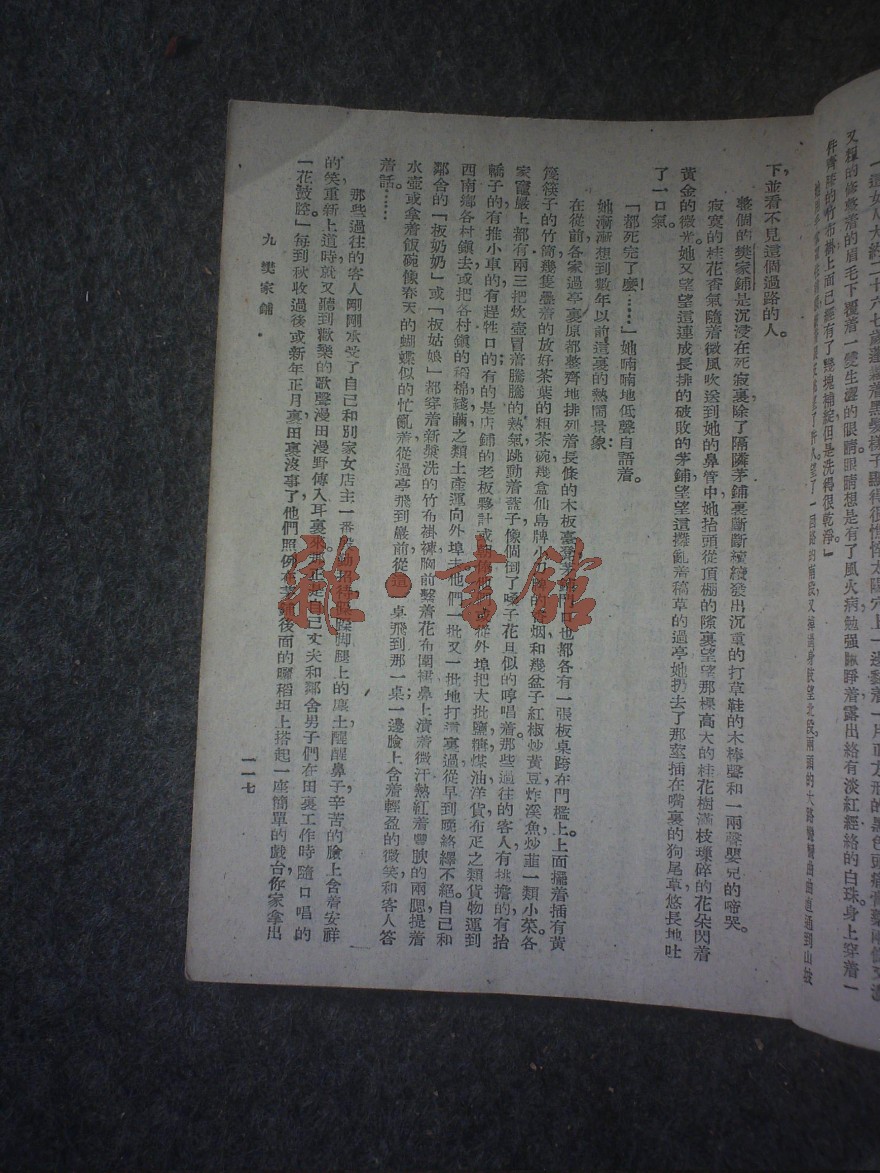 又糙的修整着的眉毛下覆着一雙生澀的眼睛眼睛想是有了風火病勉强睜着露出絡有淡紅經絡的白珠身上穿着一
件齊膝的竹布掛上面已經有了幾塊補綻但是洗得很乾淨。
下，並看不見這個過路的人。
整個的樊家鋪是沉浸在死寂裏除了隔隣茅鋪裏斷斷續續發出沉重的打草鞋的木棒聲和一兩聲嬰兒的啼哭。
寂寞的桂花香氣隨着微風吹送到她的鼻管中，她抬頭從頂棚的隙裏望望那棵高大的桂花樹滿枝瑣碎的花朵閃着
黃金的微光她又望望這連成長排的破敗的茅鋪望望這攤亂着稿草的過亭她扔去了那空插在嘴裏的狗尾草悠長地吐
了一口氣。
「都死完了麼……」她喃喃地低聲自語着。
她漸漸想到數年以前，這裏的熱鬧景象：
在從前各家過亭裏原都整齊地排列着長條的木板臺凳茅鋪門口也都各有一張板桌跨在門檻上。上面擺着插有黃
篾筷子的竹筒，幾隻疊着的放好茶葉的粗茶碗幾盒仙島牌小刀牌的香烟和幾盆子紅椒炒黃豆炸溪魚炒韮一類小菜。各
家竈嚴上都有兩三把炊壺冒着騰騰的熱氣跳動着蓋子像個倒了嗓子花旦似的哼唱着。那些過往的客人有挑擔的有抬
轎子的有推小車的有趕牲口的；有的是店鋪的老板夥計或
西南鄉各村鎮去或把各村鎮的稻棉綫繭之類土產運向外埠去他們一批又一批地打這裏過從早到晚絡繹不絕。自己和
鄰舍的「板奶奶」或「板姑娘」都穿着新漿洗的竹布褂褲胸前繫着花布圍裙鼻上漬着微汗熱紅着豐腴的兩腮提着
水壺或拿着飯碗像春天的蝴蝶似的忙亂着從過亭飛到嚴前從這一桌飛到那一桌一邊臉上含着輕盈的微笑和客人答
着話。……
那些過往的客人剛剛承受了自己和別家女店主一番
的笑重新上道時就又聽到歡樂的歌聲漫田漫野傳入耳裏來那正是自己丈夫和鄰舍男子們在田裏工作時隨口唱的
「花鼓腔」每到秋收過後或新年正月裏田裏沒事了他們照例在茅鋪後面的曬稻坦上搭起一座簡單的戲台你家拿出
九 樊家鋪
一一七
雜·書館